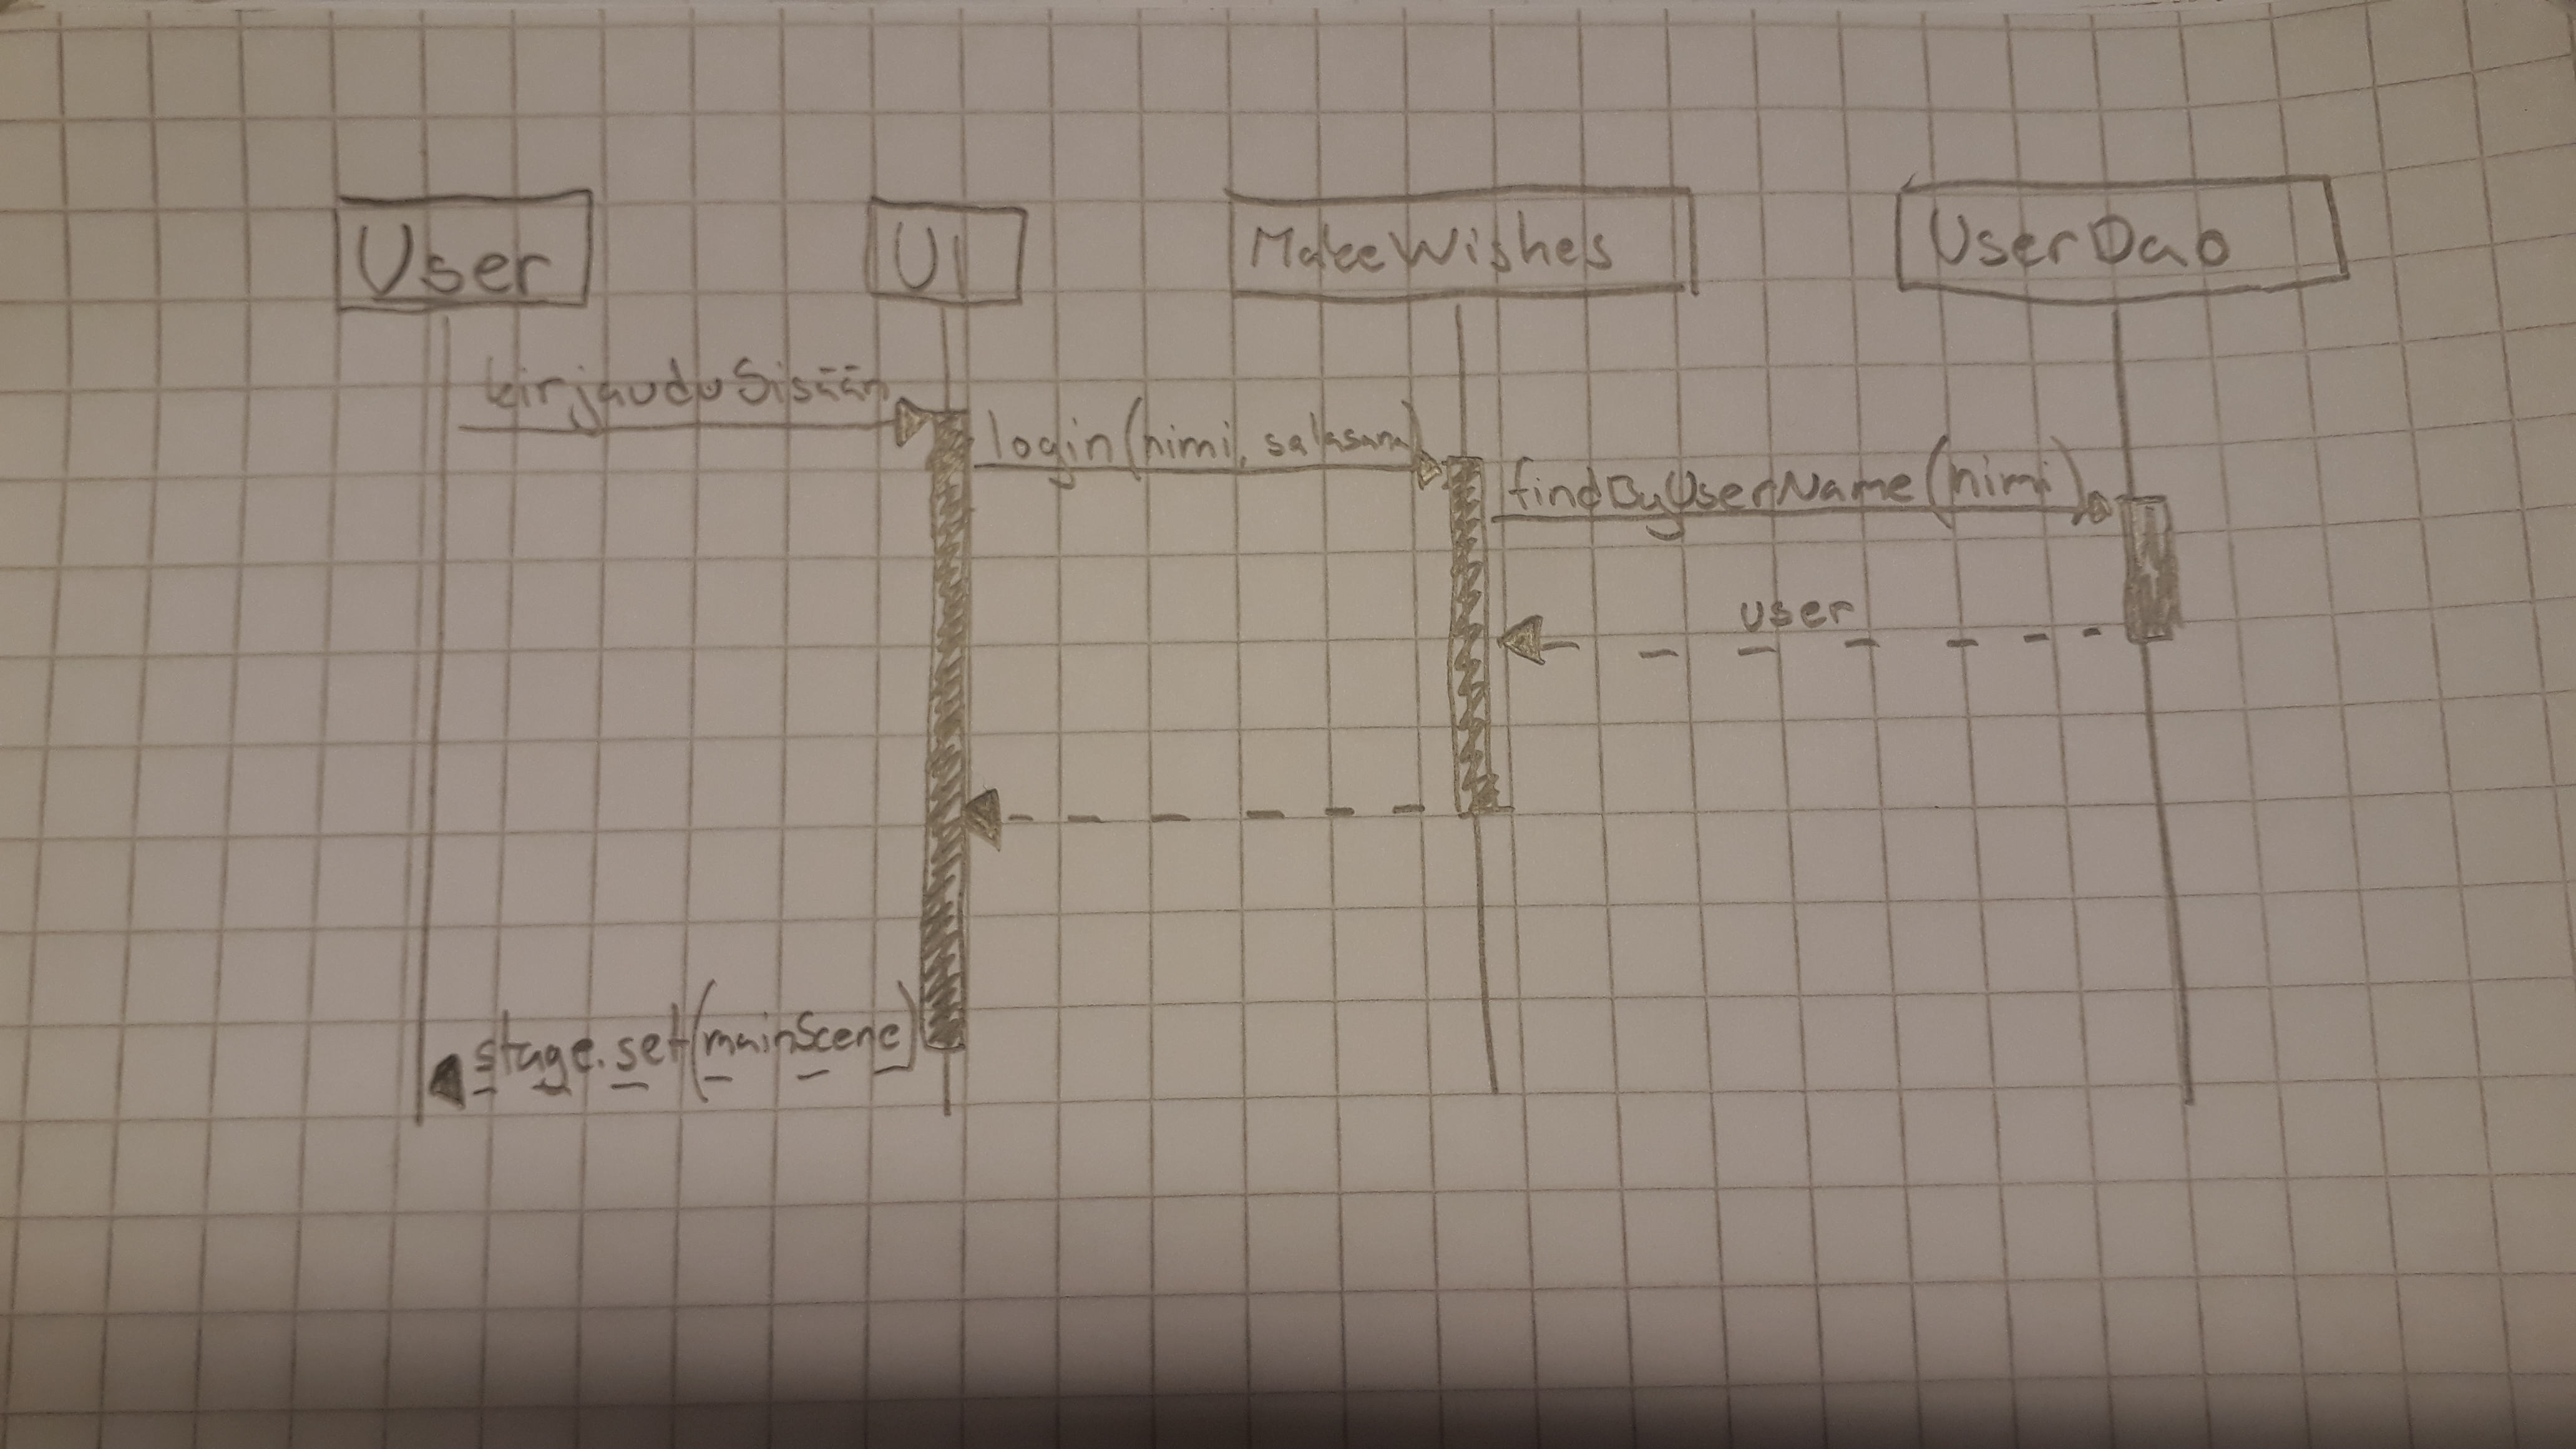 User
UI
MakeWishes
UserDao
kirjaudu Sisään
login(nimi, salasana)
findByUserName(nimi)
user
stage.set(mainScene)